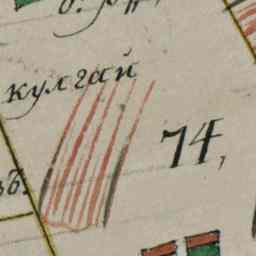 кулгай
74,
ъ.